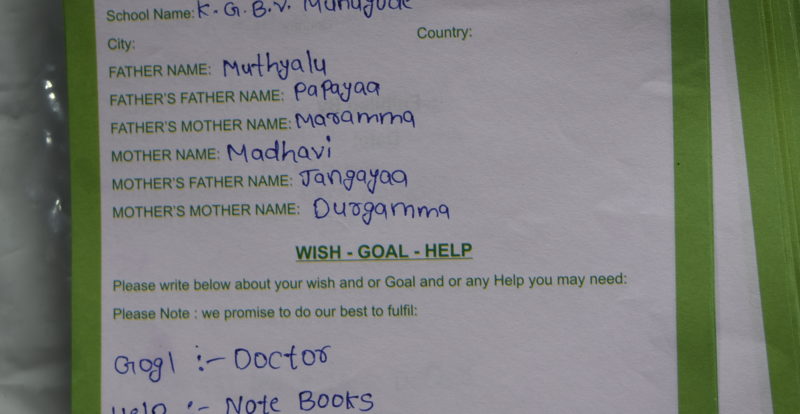 School Name: K. G. B. V. Munugode
City: Country:
FATHER NAME: Muthyalu
FATHER'S FATHER NAME: Papayaa
FATHER'S MOTHER NAME: Maramma
MOTHER NAME: Madhavi
MOTHER'S FATHER NAME: Jangayaa
MOTHER'S MOTHER NAME: Durgamma
WISH - GOAL - HELP
Please write below about your wish and or Goal and or any Help you may need:
Please Note : we promise to do our best to fulfil:
Gogl :- Doctor
Help :- Note Books